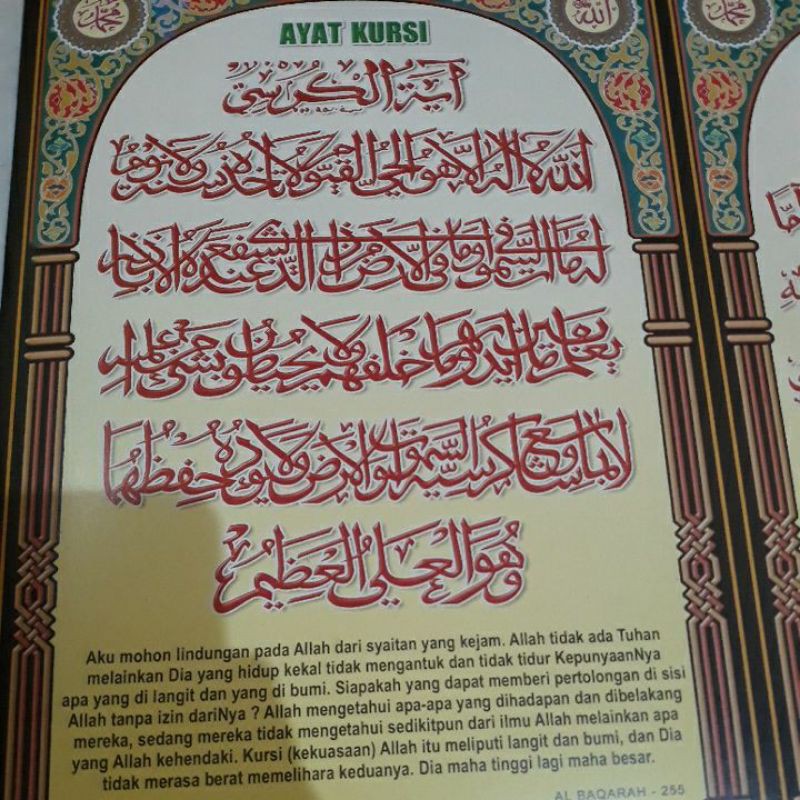 محمد
الله
محمد
AYAT KURSI
آية الكرسي
الله لا إله إلا هو الحي القيوم لا تأخذه سنة ولا نوم
له ما في السموات وما في الأرض من ذا الذي يشفع عنده إلا بإذنه
يعلم ما بين أيديهم وما خلفهم ولا يحيطون بشيء من علمه إلا
بما شاء وسع كرسيه السموات والأرض ولا يؤده حفظهما
وهو العلي العظيم
Aku mohon lindungan pada Allah dari syaitan yang kejam. Allah tidak ada Tuhan
melainkan Dia yang hidup kekal tidak mengantuk dan tidak tidur KepunyaanNya
apa yang di langit dan yang di bumi. Siapakah yang dapat memberi pertolongan di sisi
Allah tanpa izin dariNya ? Allah mengetahui apa-apa yang dihadapan dan dibelakang
mereka, sedang mereka tidak mengetahui sedikitpun dari ilmu Allah melainkan apa
yang Allah kehendaki. Kursi (kekuasaan) Allah itu meliputi langit dan bumi, dan Dia
tidak merasa berat memelihara keduanya. Dia maha tinggi lagi maha besar.
AL BAQARAH - 255